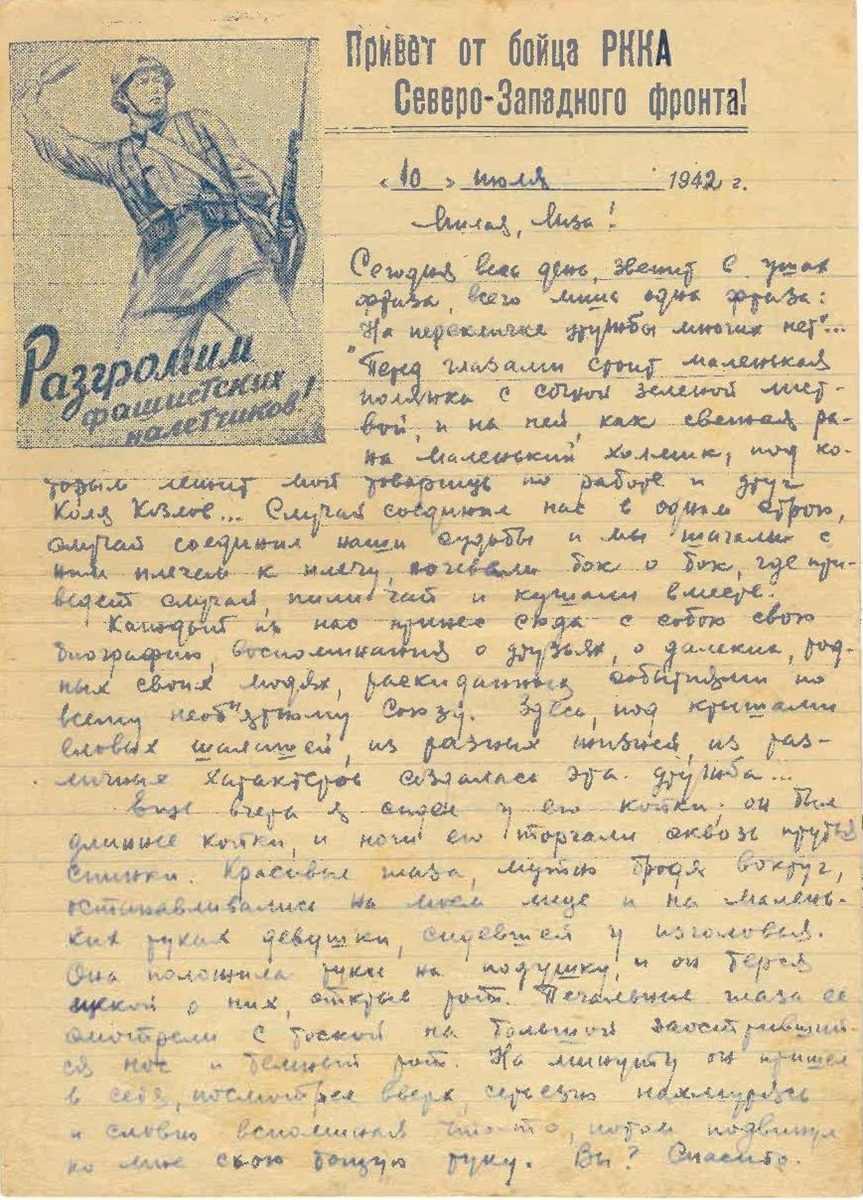 Привет от бойца РККА
Северо-Западного фронта!
Разгромим
фашистских
налетчиков!
« 10 » июля 1942 г.
Милая, Лиза!
Сегодня весь день, звенит в ушах
фраза, всего лишь одна фраза:
"На перекличке дружбы многих нет"...
Перед глазами стоит маленькая
полянка с сочной зеленой лист-
вой, и на ней, как свежая ра-
на маленький холмик, под ко-
торым лежит мой товарищ по работе и друг
Коля Козлов... Случай соединил нас в одном строю,
случай соединил наши судьбы и мы шагали с
ним плечем к плечу, ночевали бок о бок, где при-
ведет случай, пили чай и кушали вместе.
Каждый из нас принес сюда с собою свою
биографию, воспоминания о друзьях, о далеких, род-
ных своих людях, раскиданных событиями по
всему необ"ятному Союзу. Здесь, под крышами
еловых шалашей, из разных жизней, из раз-
личных характеров создалась эта дружба...
Еще вчера я сидел у его койки; он был
длиннее койки, и ноги его торчали сквозь прутья
спинки. Красивые глаза, мутно бродя вокруг,
останавливались на моем лице и на малень-
ких руках девушки, сидевшей у изголовья.
Она положила руки на подушку, и он терся
щекой о них, открыв рот. Печальные глаза ее
смотрели с тоской на большой заостривший-
ся нос и темный рот. На минуту он пришел
в себя, посмотрел вверх, серьезно нахмурясь
и словно вспоминая что-то, потом подвинул
ко мне свою тощую руку. Вы? Спасибо.